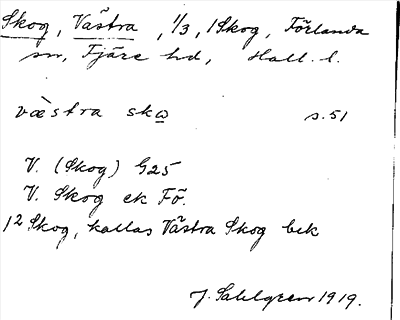 Skog, Västra, 1/3, 1 Skog, Förlanda
sn, Fjäre hd, Hall. l.
væ̀stra skω s. 51
V. (Skog) G25
V. Skog ek Fö.
1² Skog, kallas Västra Skog bek
J. Sahlgren 1919.